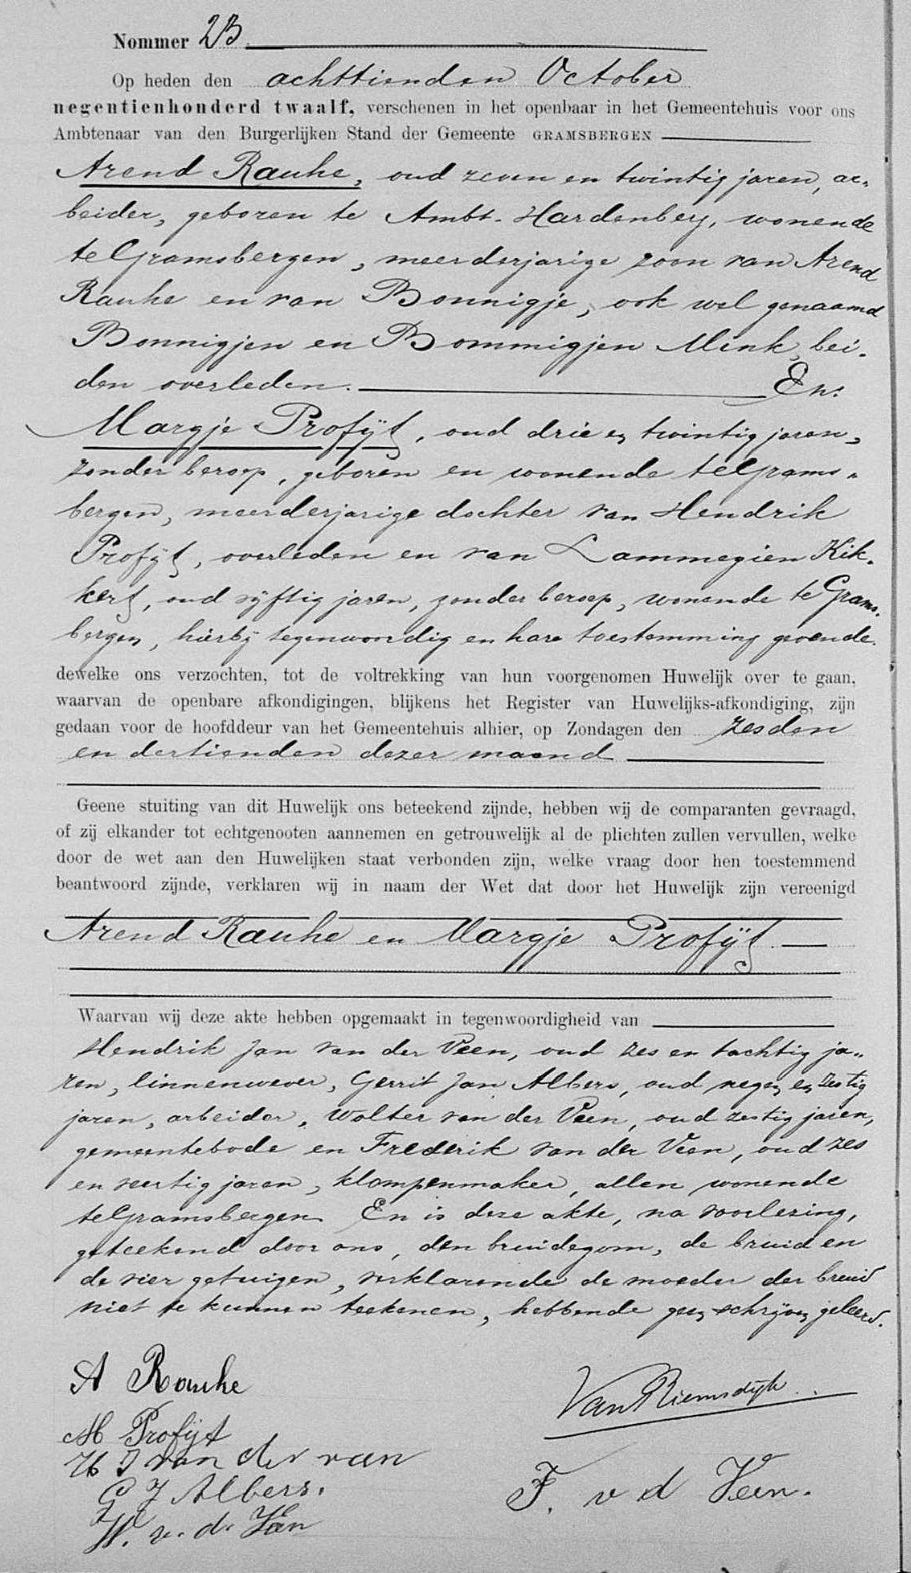 Nommer 23.
Op heden den achttienden October
negentienhonderd twaalf, verschenen in het openbaar in het Gemeentehuis voor ons
Ambtenaar van den Burgerlijken Stand der Gemeente GRAMSBERGEN
Arend Rauhe, oud zeven en twintig jaren, ar-
beider, geboren te Ambt-Hardenberg, wonende
te Gramsbergen, meerderjarige zoon van Arend
Rauhe en van Bonnigje, ook wel genaamd
Bonnigjen en Bommigjen Mink, bei-
den overleden. En:
Margje Profijt, oud drie en twintig jaren,
zonder beroep, geboren en wonende te Grams-
bergen, meerderjarige dochter van Hendrik
Profijt, overleden en van Lammegien Kik-
kert, oud vijftig jaren, zonder beroep, wonende te Grams-
bergen, hierbij tegenwoordig en hare toestemming gevende.
dewelke ons verzochten, tot de voltrekking van hun voorgenomen Huwelijk over te gaan,
waarvan de openbare afkondigingen, blijkens het Register van Huwelijks-afkondiging, zijn
gedaan voor de hoofddeur van het Gemeentehuis alhier, op Zondagen den zesden
en dertienden dezer maand
Geene stuiting van dit Huwelijk ons beteekend zijnde, hebben wij de comparanten gevraagd,
of zij elkander tot echtgenooten aannemen en getrouwelijk al de plichten zullen vervullen, welke
door de wet aan den Huwelijken staat verbonden zijn, welke vraag door hen toestemmend
beantwoord zijnde, verklaren wij in naam der Wet dat door het Huwelijk zijn vereenigd
Arend Rauhe en Margje Profijt.
Waarvan wij deze akte hebben opgemaakt in tegenwoordigheid van
Hendrik Jan van der Veen, oud zes en tachtig ja-
ren, linnenwever, Gerrit Jan Albers, oud negen en zestig
jaren, arbeider, Wolter van der Veen, oud zestig jaren,
gemeentebode en Frederik van der Veen, oud zes
en veertig jaren, klompenmaker, allen wonende
te Gramsbergen. En is deze akte, na voorlezing,
geteekend door ons, den bruidegom, de bruid en
de vier getuigen, verklarende de moeder der bruid
niet te kunnen teekenen, hebbende geen schrijven geleerd.
A Rauhe
Van Riemsdijk
M Profijt
H J van der van
G J Albers.
F. v d Veen.
W. v. d. Van